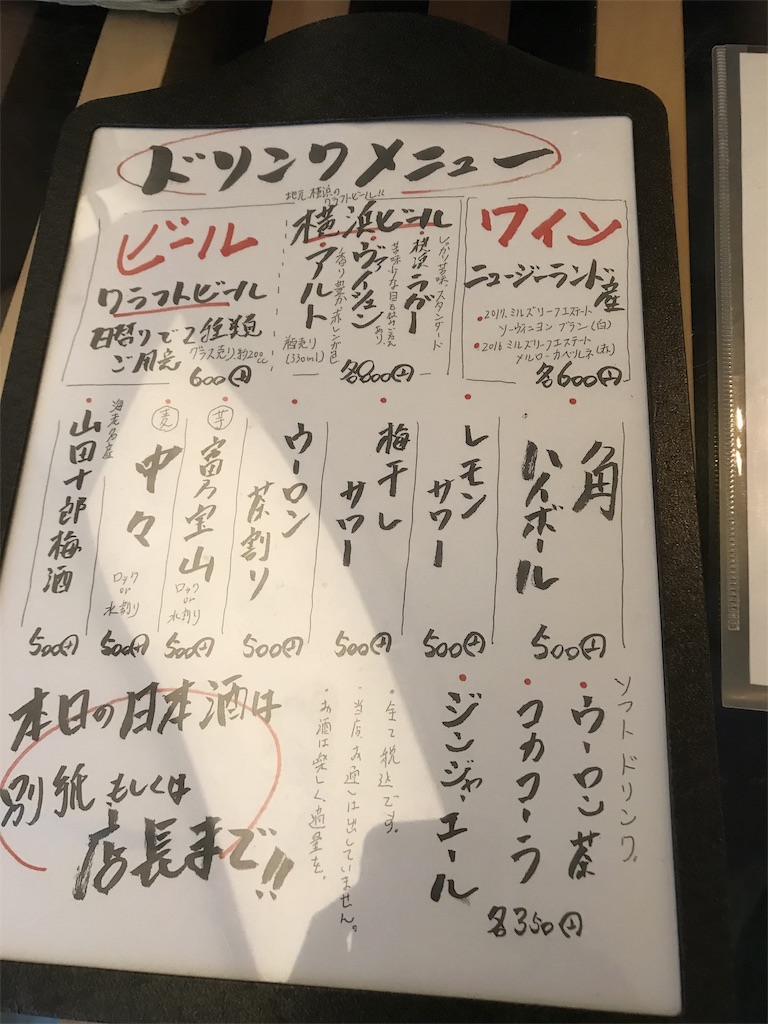 ドリンクメニュー
ビール
クラフトビール
日替りで2種類
ご用意
グラス売り、約200cc
600円
地元、横浜の
クラフトビール!!
横浜ビール
横浜ラガー
しっかり苦味、スタンダード
ヴァイツェン
アルト
瓶売り
(330ml)
各800円
ワイン
ニュージーランド産
2017. ミルズリーフエステート
ソーヴィニヨン ブラン(白)
2016 ミルズリーフエステート
メルロー・カベルネ(赤)
各600円
角
ハイボール
500円
レモン
サワー
500円
梅干し
サワー
500円
ウーロン
茶割り
500円
芋
富乃宝山
ロック
or
水割り
500円
麦
中々
ロック
or
水割り
500円
海老名産
山田十郎梅酒
500円
ソフトドリンク
ウーロン茶
コカコーラ
ジンジャーエール
各350円
・全て税込です。
・当店、お通しは出していません。
・お酒は楽しく、適量を。
本日の日本酒は
別紙 もしくは
店長まで!!